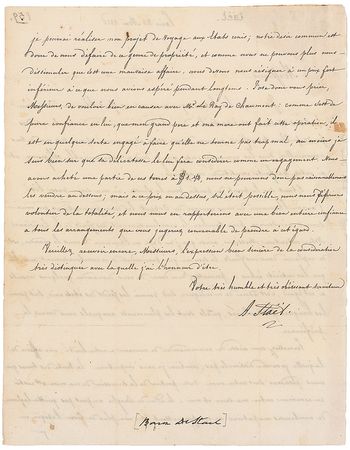 59.
je pourrai réaliser mon projet de voyage aux Etats unis; notre desir commun est
donc de nous défaire de ce genre de propriété, et comme nous ne pouvons plus nous
dissimuler que c'est une mauvaise affaire, nous devons nous résigner à un prix fort
inférieur à ce que nous avions espéré pendant longtems. J'ose donc vous prier,
Messieurs, de vouloir bien en causer avec Mr. Le Ray de Chaumont: comme c'est de
pure confiance en lui, que mon grand père et ma mère ont fait cette opération, il
est en quelque sorte engagé à faire qu'elle ne tourne pas trop mal, au moins, j'en
suis bien sûr que sa délicatesse le lui fera considérer comme un engagement. Nous
avons acheté une partie de ces terres à nous ne pourrions donc pas raisonnablement
les vendre au dessous; mais à ce prix ou au dessus, s'il était possible, nous nous déferions
volontiers de la totalité, et nous nous en rapporterions avec une bien entière confiance
à tous les arrangements que vous jugeriez convenable de prendre à cet égard.
Veuillez, recevoir encore, Messieurs, l'expression bien sincère de la considération
très distinguée avec laquelle j'ai l'honneur d'être.
Votre très humble et très obéissant serviteur
A. Staël.
[Baron de Stael]